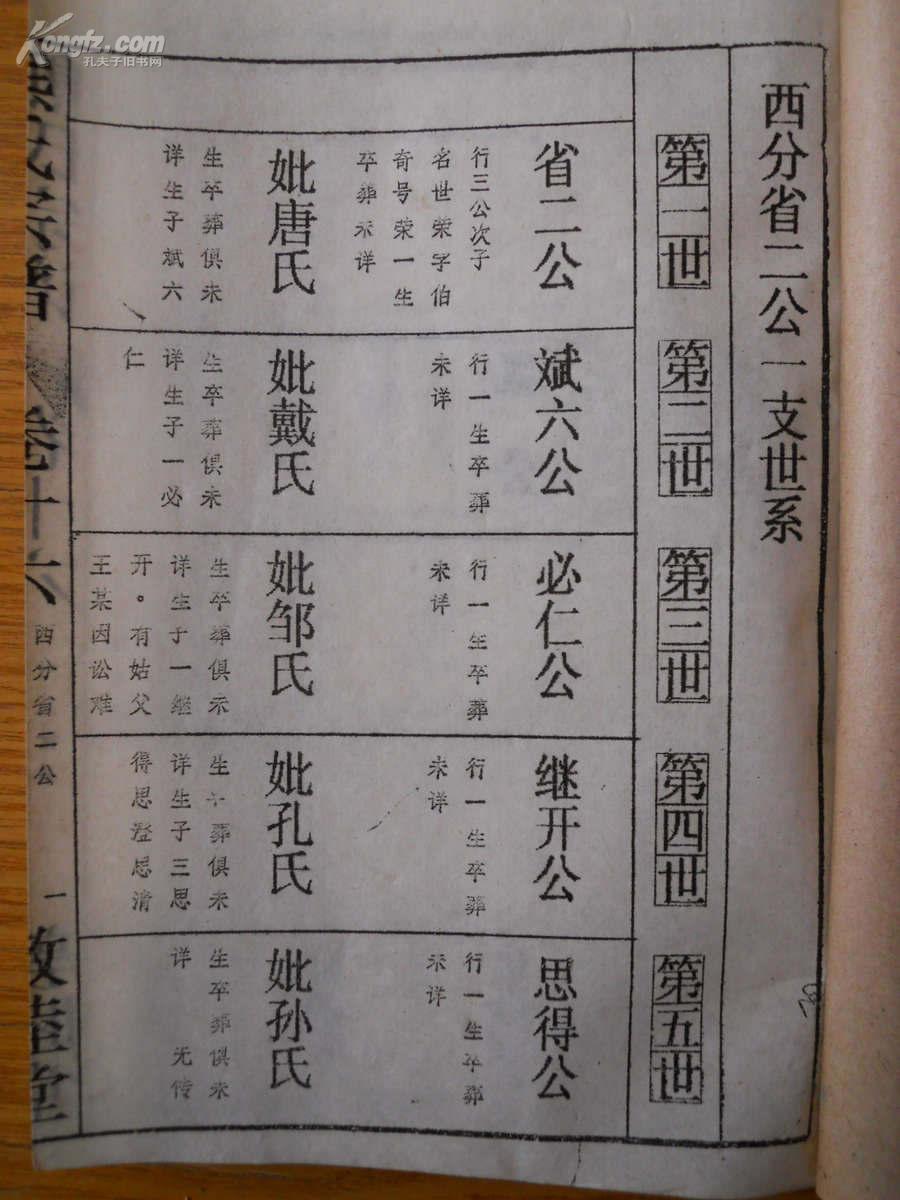 Kongfz.com
孔夫子旧书网
西分省二公一支世系
第一世
省二公
行三公次子
名世荣字伯
奇号荣一生
卒葬未详
妣唐氏
生卒葬俱未
详生子斌六
第二世
斌六公
行一生卒葬
未详
妣戴氏
生卒葬俱未
详生子一必
仁
第三世
必仁公
行一生卒葬
未详
妣邹氏
生卒葬俱未
详生子一继
开。有姑父
王某因讼难
第四世
继开公
行一生卒葬
未详
妣孔氏
生卒葬俱未
详生子三思
得思澄思清
第五世
思得公
行一生卒葬
未详
妣孙氏
生卒葬俱未
详 无传
氏宗谱
卷十六
西分省二公
一
敦睦堂